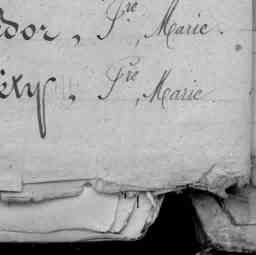 dor, Fre, Marie.
éty, Fre, Marie